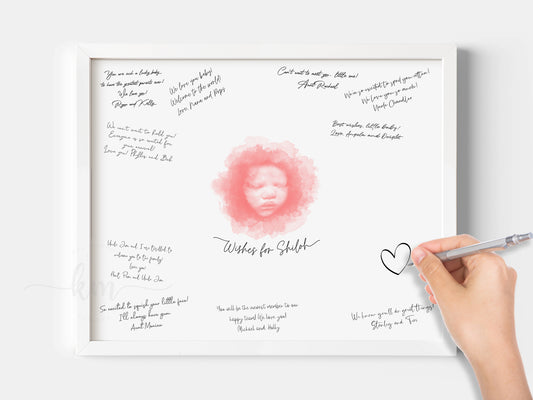 You are such a lucky baby
to have the greatest parents ever!
We love you!
Rigo and Kelly
We love you baby!
Welcome to the world!
Love, Nana and Pops
Can't wait to meet you, little one!
Aunt Rachael
We're so excited to spoil you rotten!
We love you so much!
Uncle Chandler
Best wishes, little baby!
Love, Angela and Dwight
We can't wait to hold you!
Everyone is so excited for
your arrival!
Love you! Phyllis and Bob
Wishes for Shiloh
Uncle Jim and I are thrilled to
welcome you to the family!
Love you!
Aunt Pam and Uncle Jim
km
So excited to squish your little face!
I'll always love you.
Aunt Monica
You will be the newest member to our
happy tribe! We love you!
Michael and Holly
We know you'll do great things!
Stanley and Teri